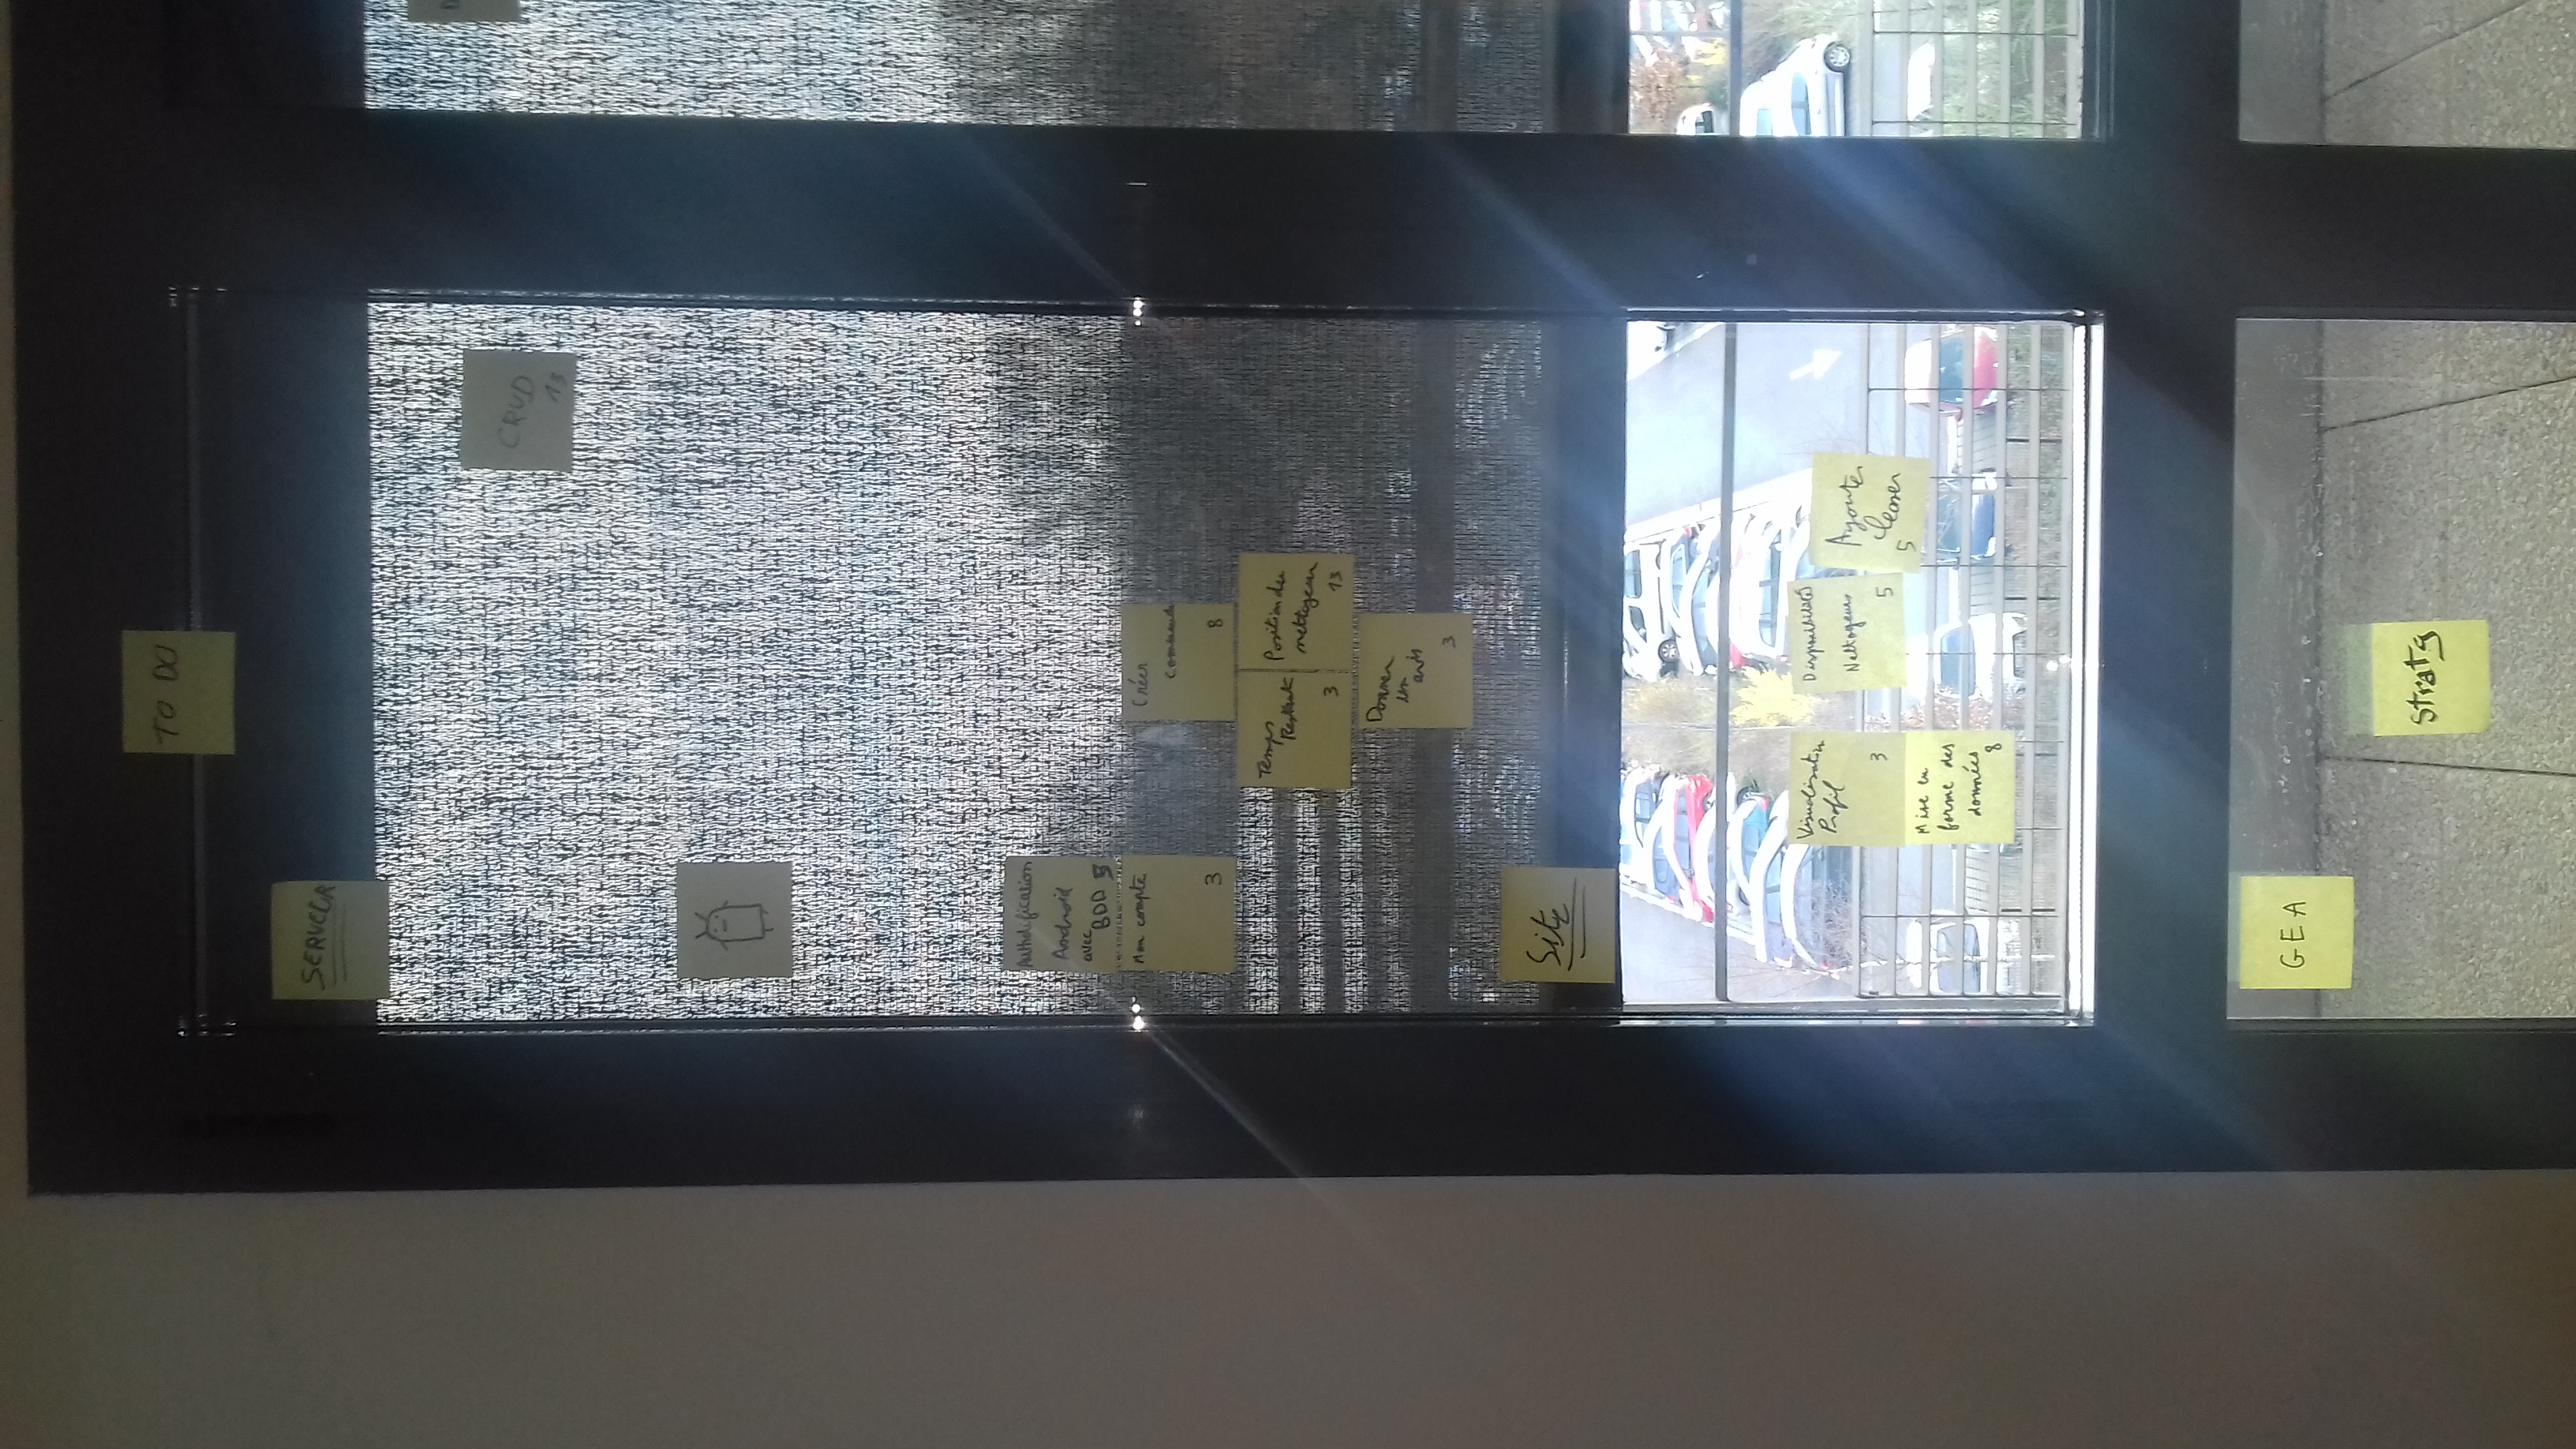 TO DO
SERVEUR
CRUD
13
Authdification
Android
avec
BDD 5
Mon compte
3
Créer
Commande
8
Temps
Restant
3
Position du
nettoyeur
13
Donner
un
avis
3
Site
Visualisation
Profil
3
Disponibilité
Nettoyeurs
5
Ajouter
5
Mise en
forme des
données
8
GEA
Stratg